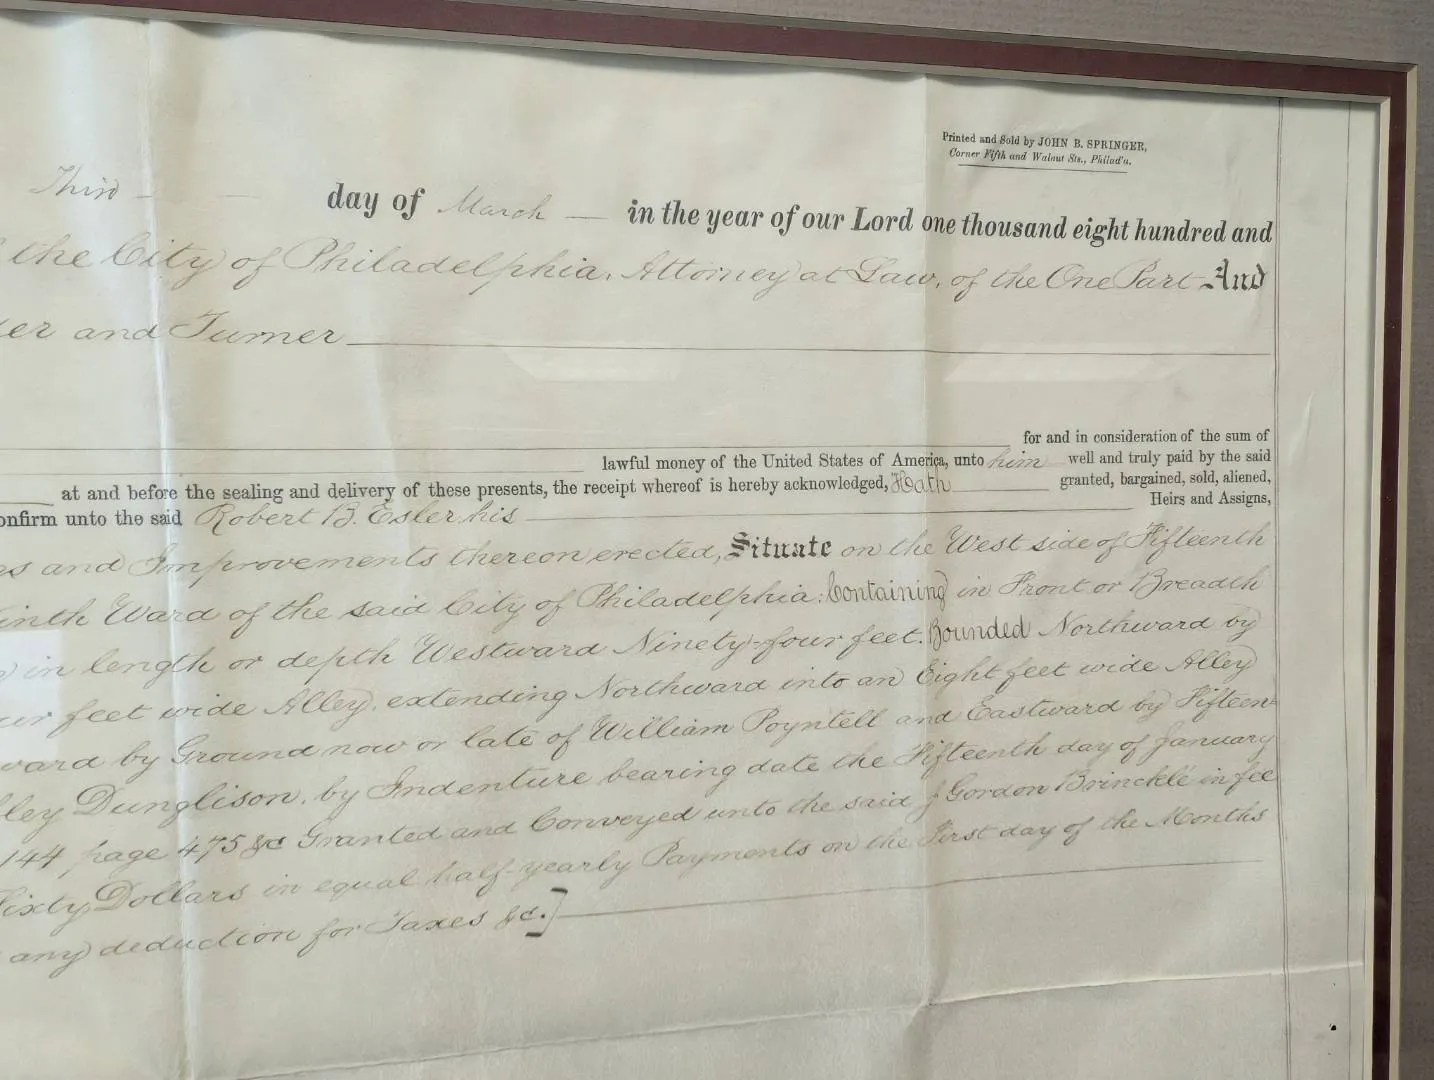 Printed and Sold by JOHN B. SPRINGER,
Corner Fifth and Walnut Sts., Philad'a.
Third day of March in the year of our Lord one thousand eight hundred and
the City of Philadelphia, Attorney at Law, of the One Part And
er and Turner
for and in consideration of the sum of
lawful money of the United States of America, unto him well and truly paid by the said
at and before the sealing and delivery of these presents, the receipt whereof is hereby acknowledged, Hath granted, bargained, sold, aliened,
onfirm unto the said Robert B. Esler his Heirs and Assigns,
s and Improvements thereon erected, Situate on the West side of Fifteenth
inth Ward of the said City of Philadelphia: Containing in Front or Breadth
in length or depth Westward Ninety-four feet. Bounded Northward by
ur feet wide Alley, extending Northward into an Eight feet wide Alley
ward by Ground now or late of William Poyntell and Eastward by Fifteen-
ley Dunglison, by Indenture bearing date the Fifteenth day of January
144 page 475 &c Granted and Conveyed unto the said J Gordon Brincklé in fee
Sixty Dollars in equal half-yearly Payments on the First day of the Months
any deduction for Taxes &c.]